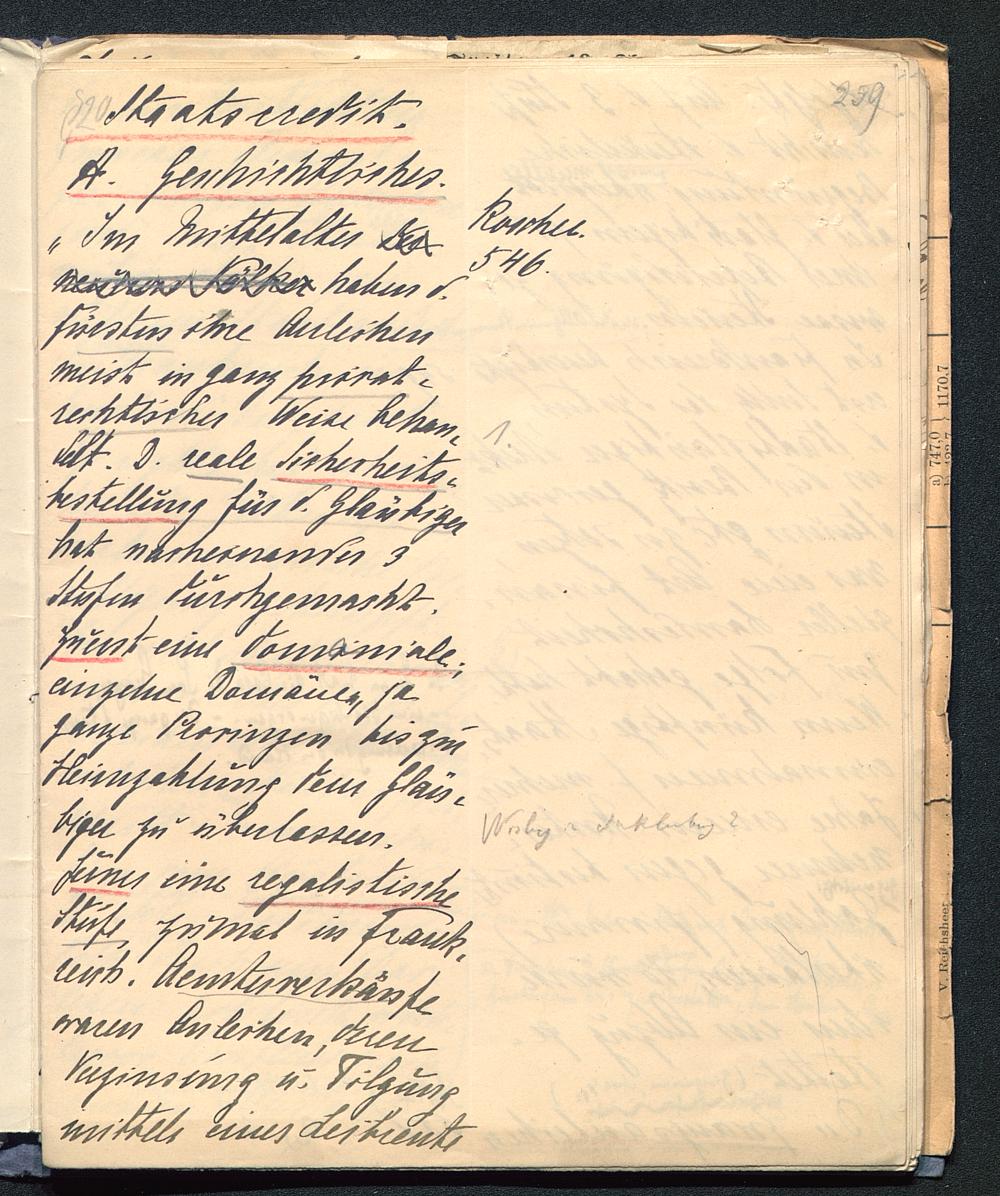 239
Staatscredit.
A. Geschichtliches.
„Im Mittelalter der
neueren Völker haben d.
Fürsten ihre Anleihen
meist in ganz privat-
rechtlicher Weise behan-
delt. D. reale Sicherheits-
bestellung für d. Gläubiger
hat nacheinander 3
Stufen durchgemacht.
Zuerst eine domaniale,
einzelne Domänen, ja
ganze Provinzen bis zur
Heimzahlung dem Gläu-
biger zu überlassen.
Ferner eine regalistische
Stufe, zumal in Frank-
reich. Aemterverkäufe
waren Anleihen, deren
Verzinsung u. Tilgung
mittels einer Leibrente
Roscher.
546.
1.